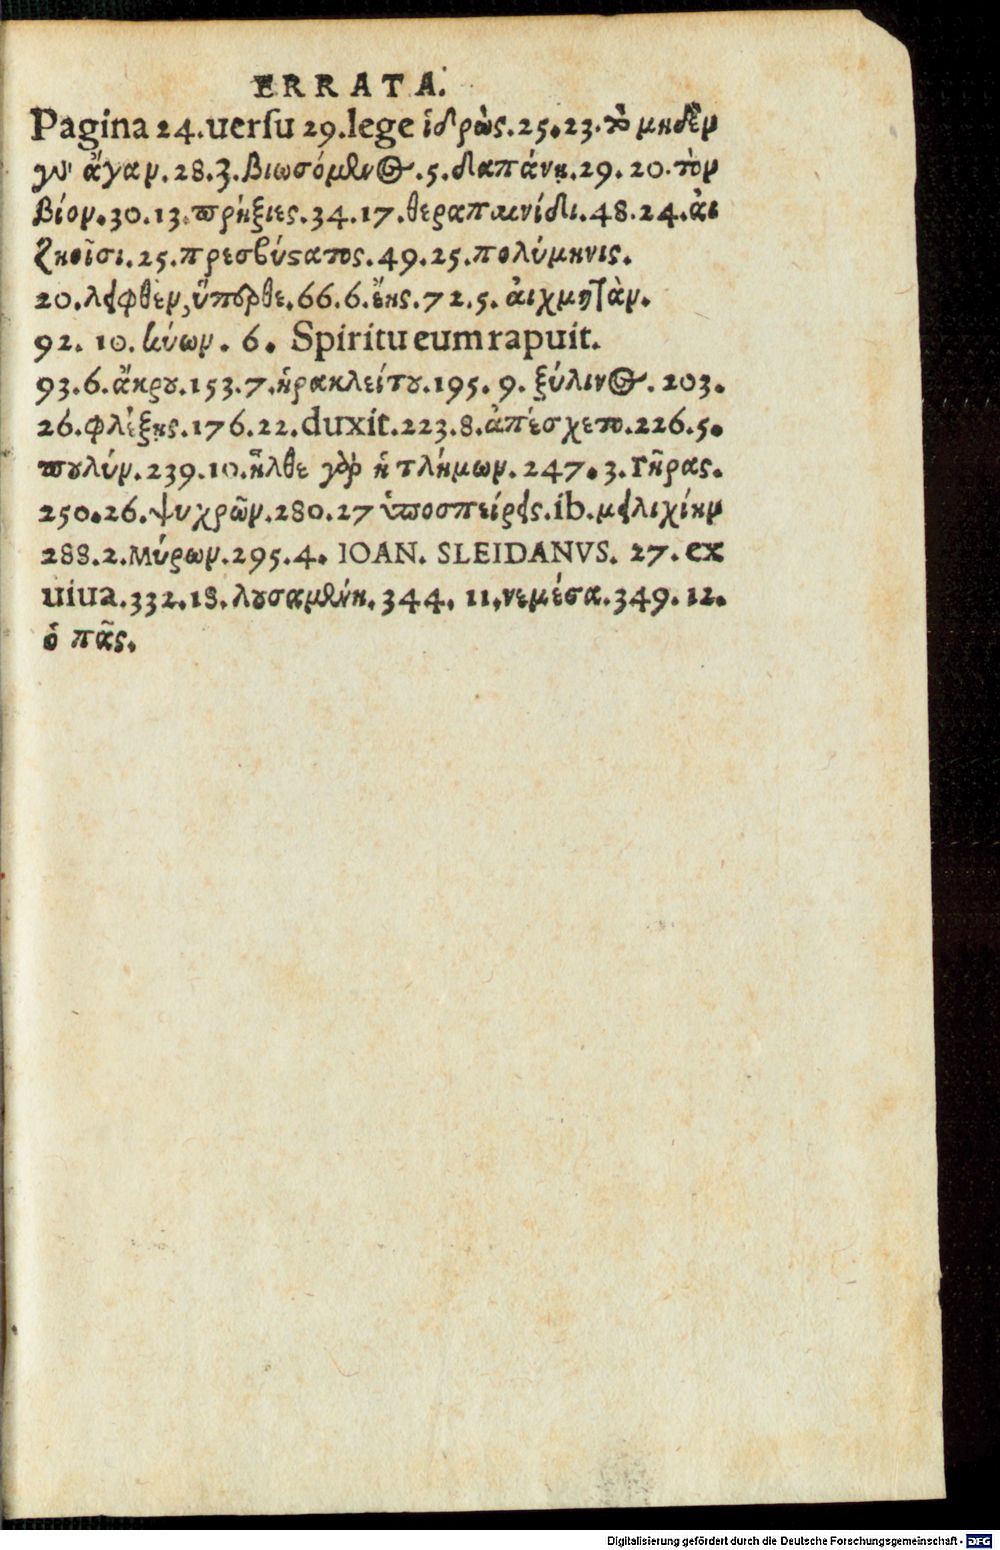 ERRATA.
Pagina 24. uersu 29. lege ἱδρὼς. 25. 23. τὸ μηδὲν
γ' ἄγαν. 28. 3. βιωσόμενος. 5. δαπάνῃ. 29. 20. τὸν
βίον. 30. 13. πρήξιες. 34. 17. θεραπαινίδι. 48. 24. ἀι
ζηοῖσι. 25. πρεσβύτατος. 49. 25. πολύμηνις.
20. λειφθὲν, ὕπερθε. 66. 6. ἕης. 72. 5. ἀιχμητὰν.
92. 10. κύων. 6. Spiritu eum rapuit.
93. 6. ἄκρου. 153. 7. ἡρακλείτου. 195. 9. ξύλινος. 203.
26. φλέξῃς. 176. 22. duxit. 223. 8. ἀπέσχετο. 226. 5.
πουλύν. 239. 10. ἦλθε γὰρ ἡ τλήμων. 247. 3. Γῆρας.
250. 26. ψυχρῶν. 280. 27 ὑποσπείρεις. ib. μειλιχίην
288. 2. Μύρων. 295. 4. IOAN. SLEIDANVS. 27. ex
uiua. 332. 18. λουσαμένη. 344. 11. νεμέσα. 349. 12.
ὁ πᾶς.
Digitalisierung gefördert durch die Deutsche Forschungsgemeinschaft - DFG